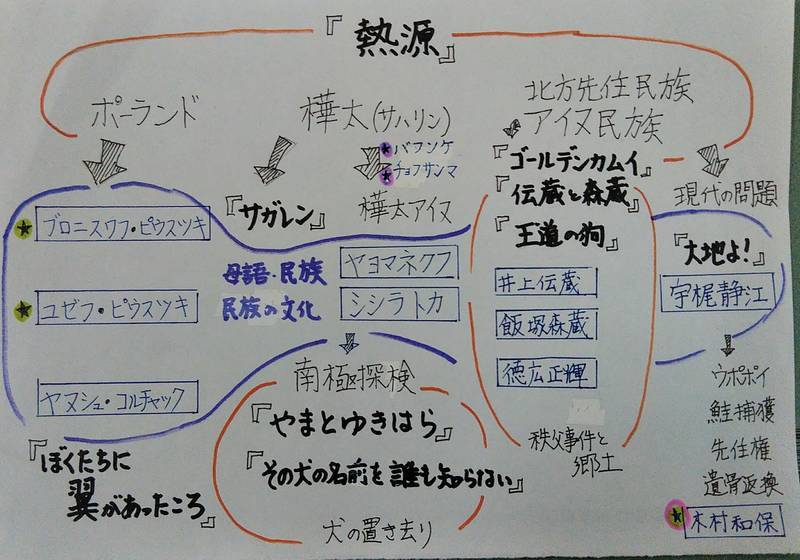 『熱源』
ポーランド
樺太(サハリン)
北方先住民族
アイヌ民族
★バフンケ
★チョフサンマ
『ゴールデンカムイ』
『サガレン』
樺太アイヌ
『伝蔵と森蔵』
『王道の狗』
現代の問題
★ブロニスワフ・ピウスツキ
母語・民族
民族の文化
ヤヨマネクフ
シシラトカ
井上伝蔵
飯塚森蔵
徳広正輝
『大地よ!』
宇梶静江
★ユゼフ・ピウスツキ
ヤヌシュ・コルチャック
『ぼくたちに
翼があったころ』
南極探検
『やまとゆきはら』
『その犬の名前を誰も知らない』
犬の置き去り
秩父事件と
郷土
ウポポイ
鮭捕獲
先住権
遺骨返換
★木村和保